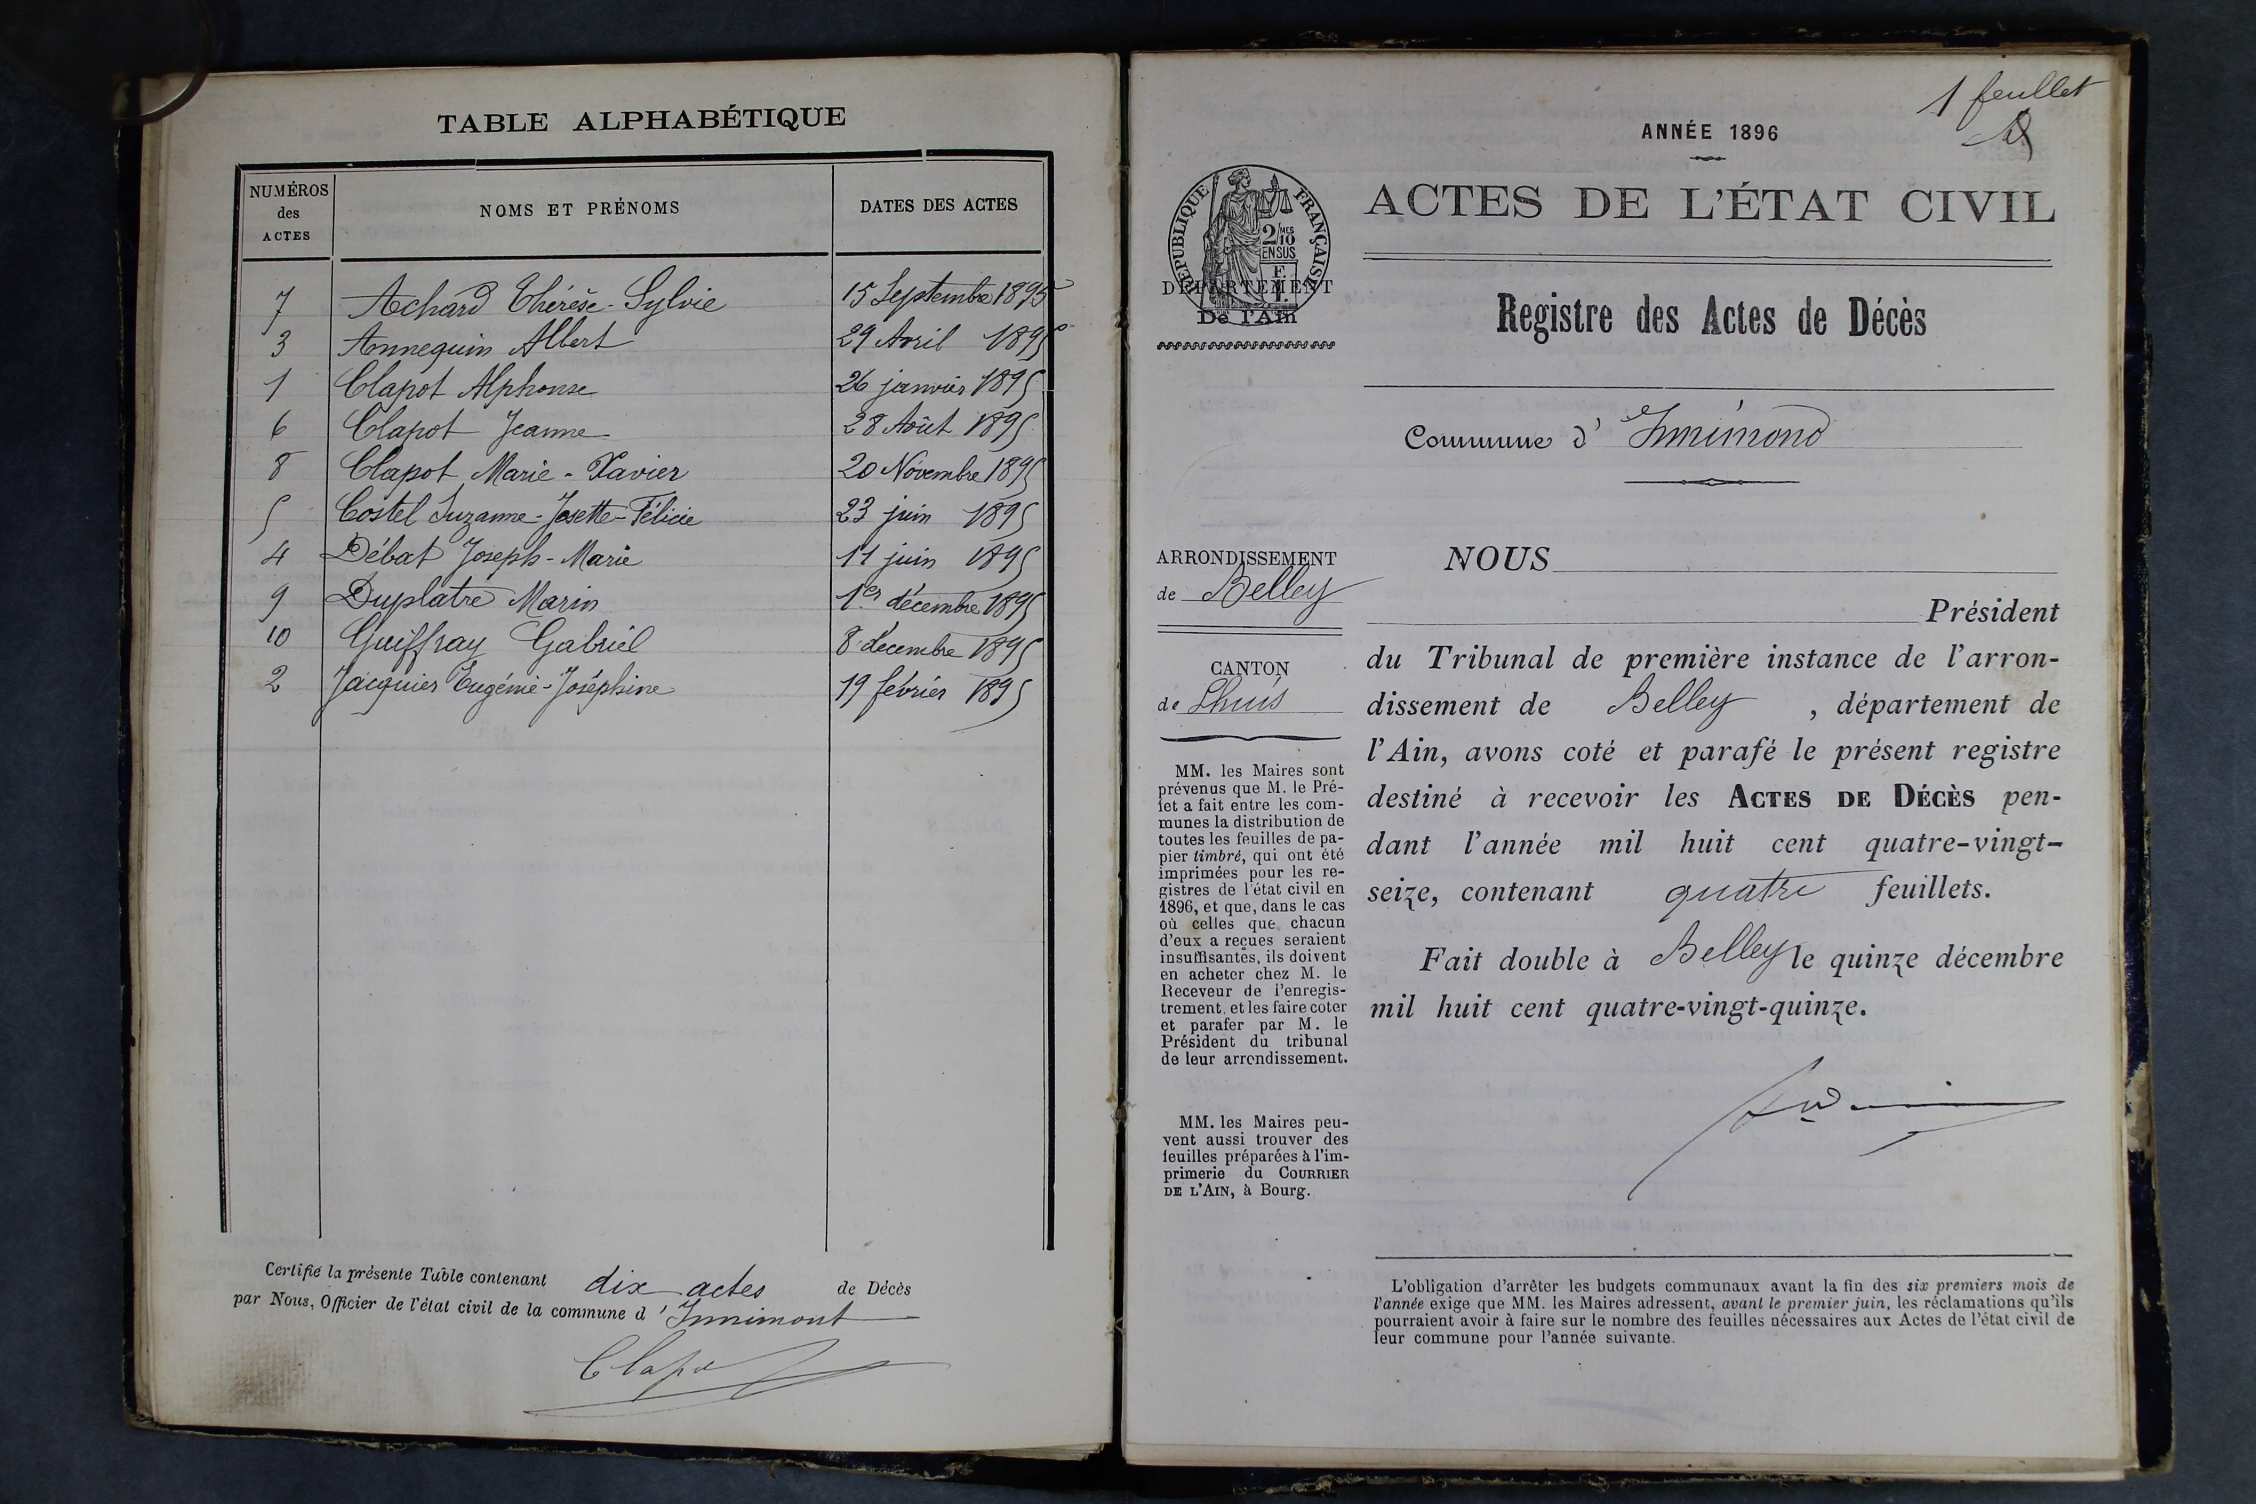 TABLE ALPHABÉTIQUE
NUMÉROS des ACTES
NOMS ET PRÉNOMS
DATES DES ACTES
7 Achard Thérèse-Sylvie 15 Septembre 1895
3 Annequin Albert 29 Avril 1895
1 Clapot Alphonse 26 janvier 1895
6 Clapot Jeanne 28 Août 1895
8 Clapot Marie-Xavier 20 Novembre 1895
5 Costel Suzanne-Josette-Félicie 23 juin 1895
4 Débat Joseph-Marie 11 juin 1895
9 Duplatre Marin 1er décembre 1895
10 Guiffray Gabriel 8 décembre 1895
2 Jacquier Eugénie-Joséphine 19 février 1895
Certifié la présente Table contenant dix actes de Décès
par Nous, Officier de l'état civil de la commune d'Innimont
Clapot
1 feuillet
ANNÉE 1896
RÉPUBLIQUE FRANÇAISE
2/10 MES
EN SUS
ACTES DE L'ÉTAT CIVIL
DÉPARTEMENT
De l'Ain
Registre des Actes de Décès
Commune d' Innimond
ARRONDISSEMENT
de Belley
CANTON
de Lhuis
MM. les Maires sont
prévenus que M. le Pré-
fet a fait entre les com-
munes la distribution de
toutes les feuilles de pa-
pier timbré, qui ont été
imprimées pour les re-
gistres de l'état civil en
1896, et que, dans le cas
où celles que chacun
d'eux a reçues seraient
insuffisantes, ils doivent
en acheter chez M. le
Receveur de l'enregis-
trement, et les faire coter
et parafer par M. le
Président du tribunal
de leur arrondissement.
MM. les Maires peu-
vent aussi trouver des
feuilles préparées à l'im-
primerie du COURRIER
DE L'AIN, à Bourg.
NOUS
Président
du Tribunal de première instance de l'arron-
dissement de Belley, département de
l'Ain, avons coté et parafé le présent registre
destiné à recevoir les ACTES DE DÉCÈS pen-
dant l'année mil huit cent quatre-vingt-
seize, contenant quatre feuillets.
Fait double à Belley le quinze décembre
mil huit cent quatre-vingt-quinze.
L'obligation d'arrêter les budgets communaux avant la fin des six premiers mois de
l'année exige que MM. les Maires adressent, avant le premier juin, les réclamations qu'ils
pourraient avoir à faire sur le nombre des feuilles nécessaires aux Actes de l'état civil de
leur commune pour l'année suivante.